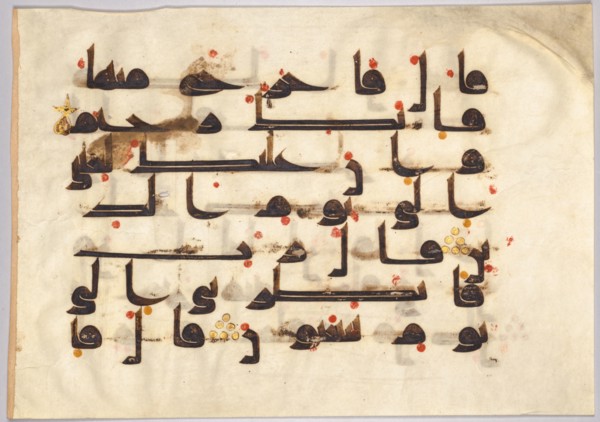 قال فاخرج منها
فانك رجيم
وان عليك لعنتي
الى يوم الد
ين قال رب
فانظرني الى
يوم يبعثون قال فا